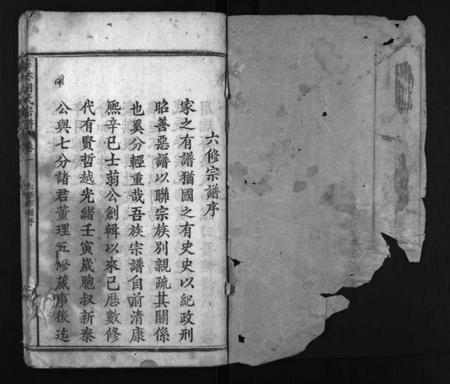 六修宗譜序
家之有譜猶國之有史史以紀政刑
昭善惡譜以聯宗族別親疏其關係
也奚分輕重哉吾族宗譜自前清康
熙辛巳士翁公創輯以來已歷數修
代有賢哲越光緒壬寅歲胞叔新泰
公與七分諸君董理五修蕆事後迄